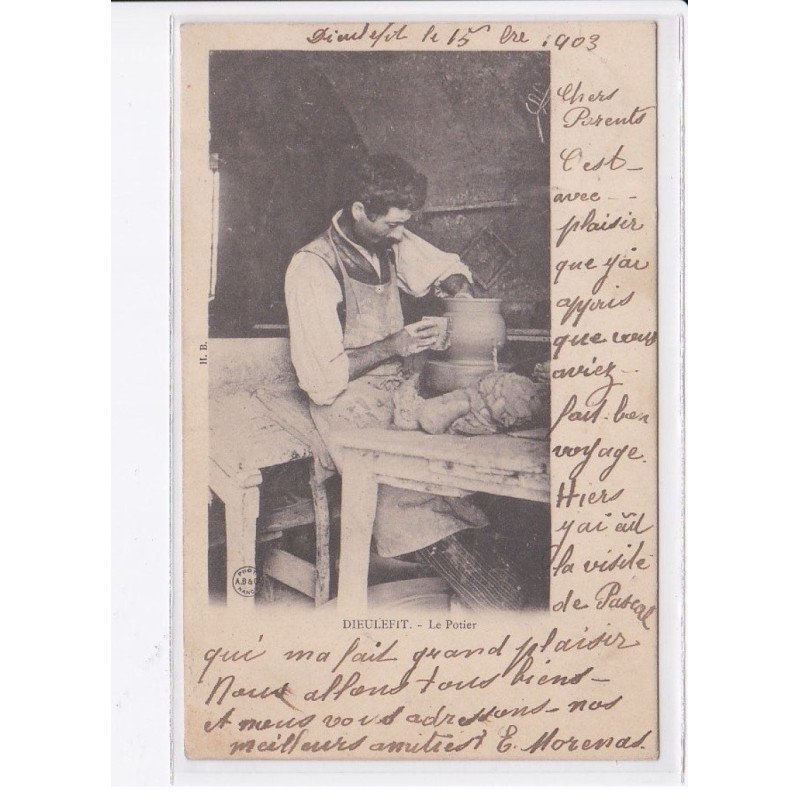 Dieulefit le 15 bre 1903
Chers
Parents
C'est
avec
plaisir
que j'ai
appris
que vous
aviez
fait ben
voyage.
Hiers
j'ai
la visite
de Pascal
qui ma fait grand plaisir
Nous allons tous biens
et nous vous adressons nos
meilleurs amitiés E. Morenas.
H. B.
PHOT
A.B & C
NANCY
DIEULEFIT. - Le Potier